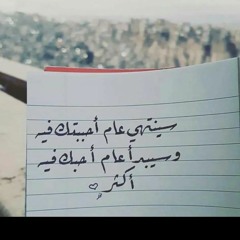 سينتهي عام أحببتك فيه
وسيبدأ عام أحبك فيه
أكثر